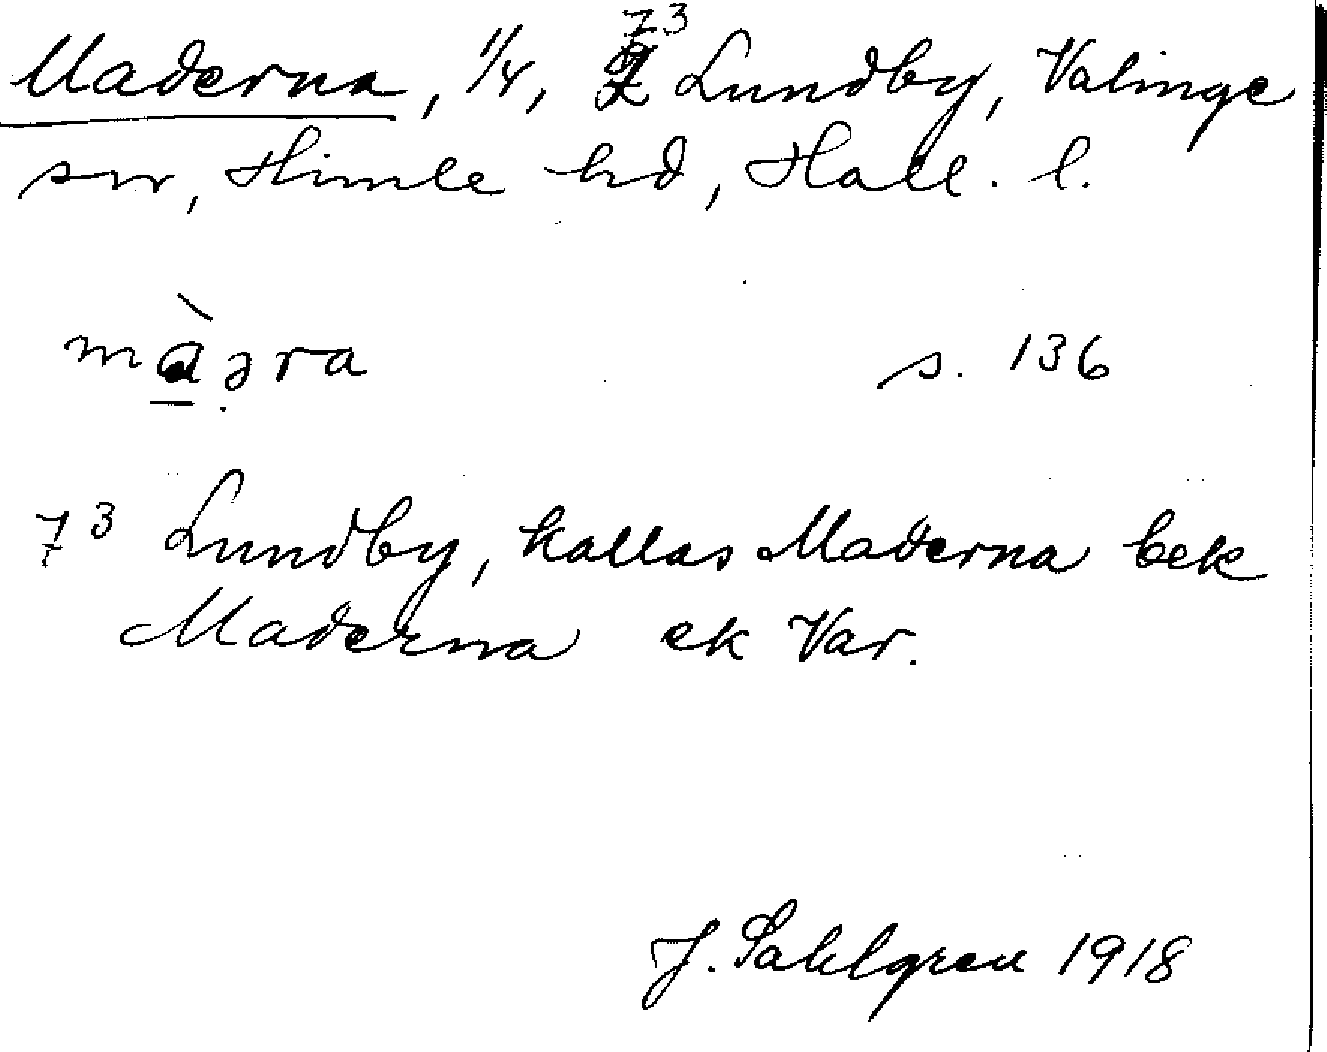 Maderna, 1/4, 7³ Lundby, Valinge
sn, Himle hd, Hall. l.
màəra s. 136
7³ Lundby, kallas Maderna bek
Maderna ek Var.
J. Sahlgren 1918